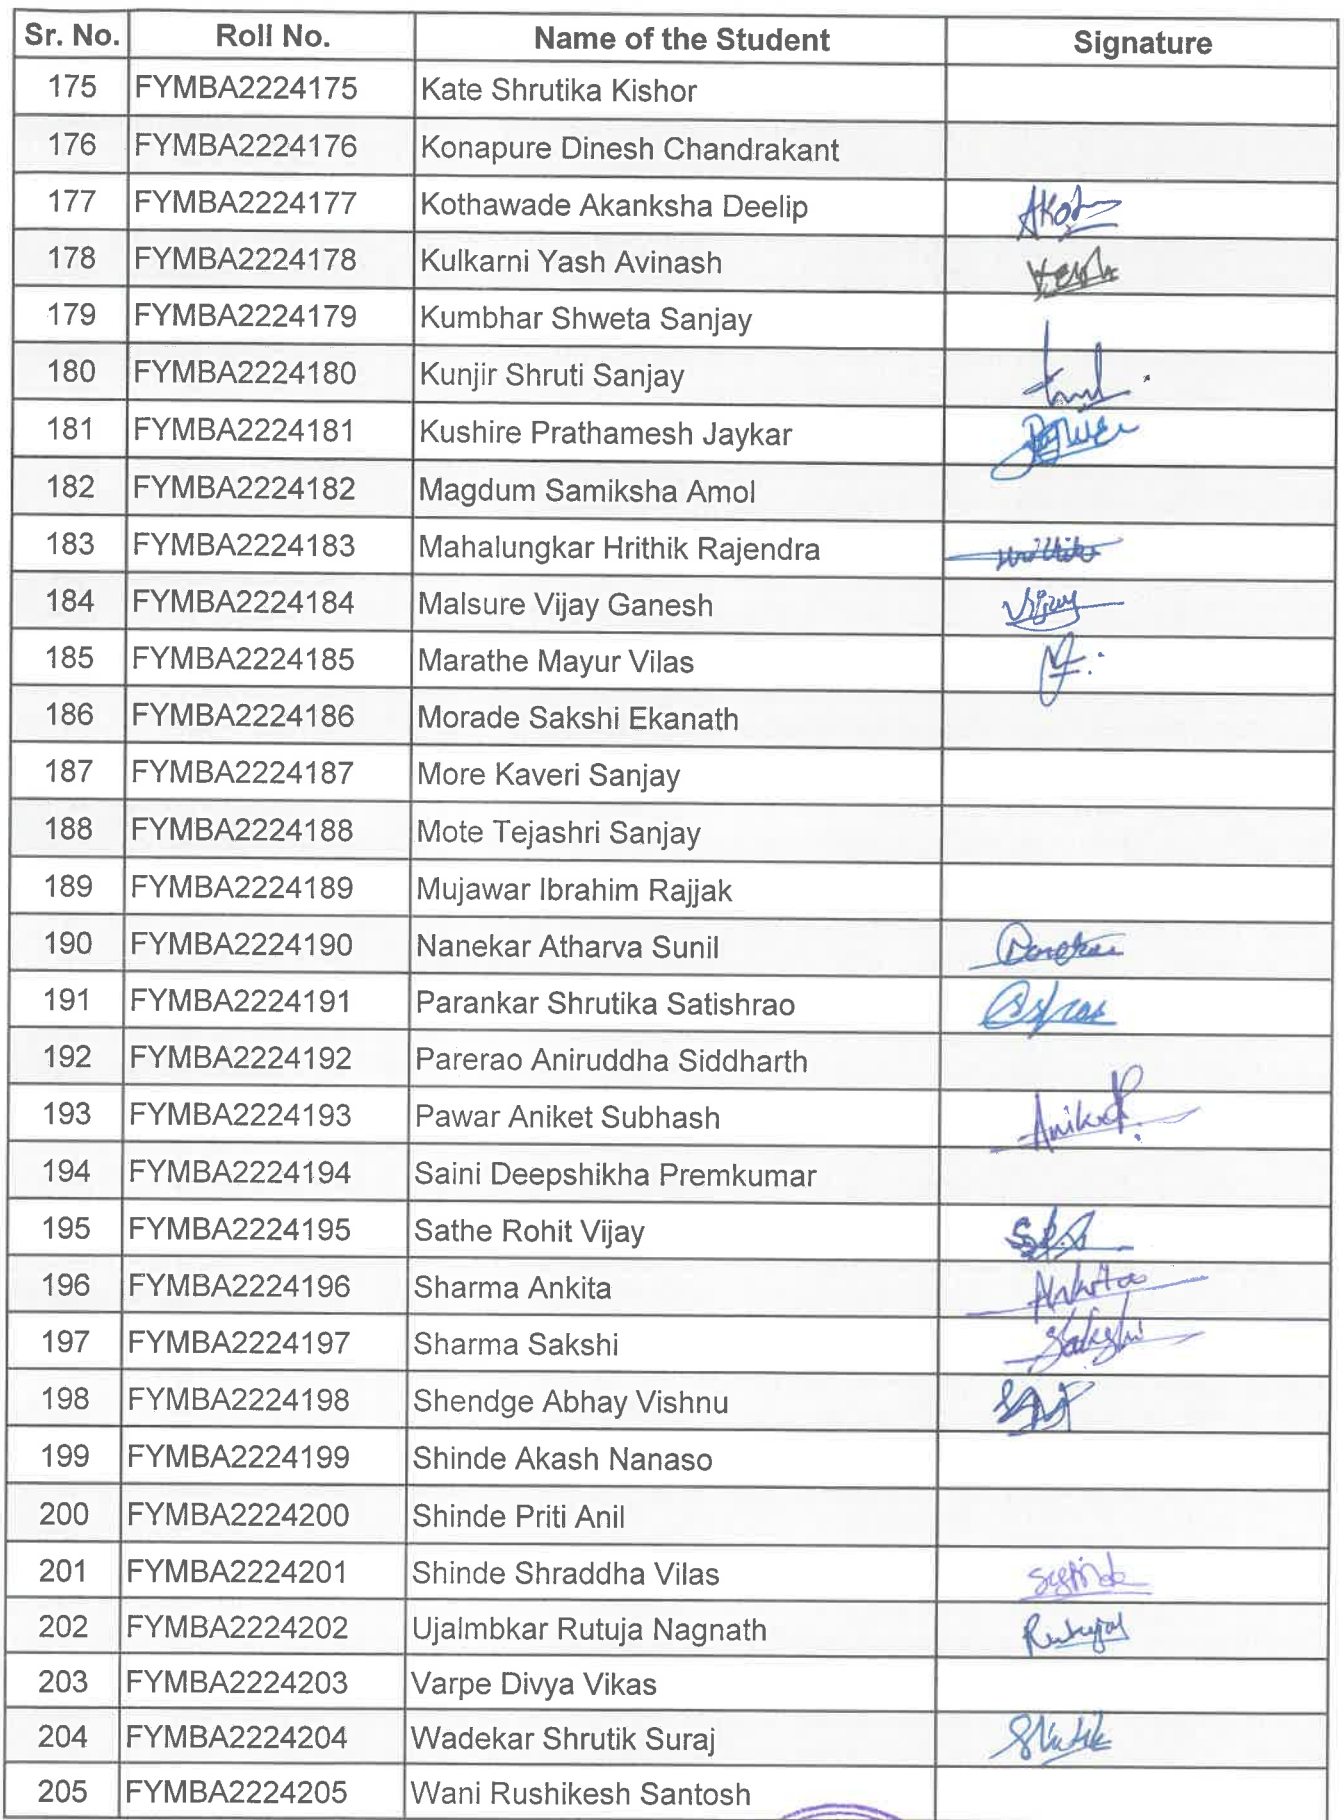 Sr. No. Roll No. Name of the Student Signature
175 FYMBA2224175 Kate Shrutika Kishor
176 FYMBA2224176 Konapure Dinesh Chandrakant
177 FYMBA2224177 Kothawade Akanksha Deelip
178 FYMBA2224178 Kulkarni Yash Avinash
179 FYMBA2224179 Kumbhar Shweta Sanjay
180 FYMBA2224180 Kunjir Shruti Sanjay
181 FYMBA2224181 Kushire Prathamesh Jaykar
182 FYMBA2224182 Magdum Samiksha Amol
183 FYMBA2224183 Mahalungkar Hrithik Rajendra
184 FYMBA2224184 Malsure Vijay Ganesh Vijay
185 FYMBA2224185 Marathe Mayur Vilas
186 FYMBA2224186 Morade Sakshi Ekanath
187 FYMBA2224187 More Kaveri Sanjay
188 FYMBA2224188 Mote Tejashri Sanjay
189 FYMBA2224189 Mujawar Ibrahim Rajjak
190 FYMBA2224190 Nanekar Atharva Sunil
191 FYMBA2224191 Parankar Shrutika Satishrao
192 FYMBA2224192 Parerao Aniruddha Siddharth
193 FYMBA2224193 Pawar Aniket Subhash
194 FYMBA2224194 Saini Deepshikha Premkumar
195 FYMBA2224195 Sathe Rohit Vijay
196 FYMBA2224196 Sharma Ankita Ankita
197 FYMBA2224197 Sharma Sakshi Sakshi
198 FYMBA2224198 Shendge Abhay Vishnu
199 FYMBA2224199 Shinde Akash Nanaso
200 FYMBA2224200 Shinde Priti Anil
201 FYMBA2224201 Shinde Shraddha Vilas
202 FYMBA2224202 Ujalmbkar Rutuja Nagnath Rutuja
203 FYMBA2224203 Varpe Divya Vikas
204 FYMBA2224204 Wadekar Shrutik Suraj
205 FYMBA2224205 Wani Rushikesh Santosh